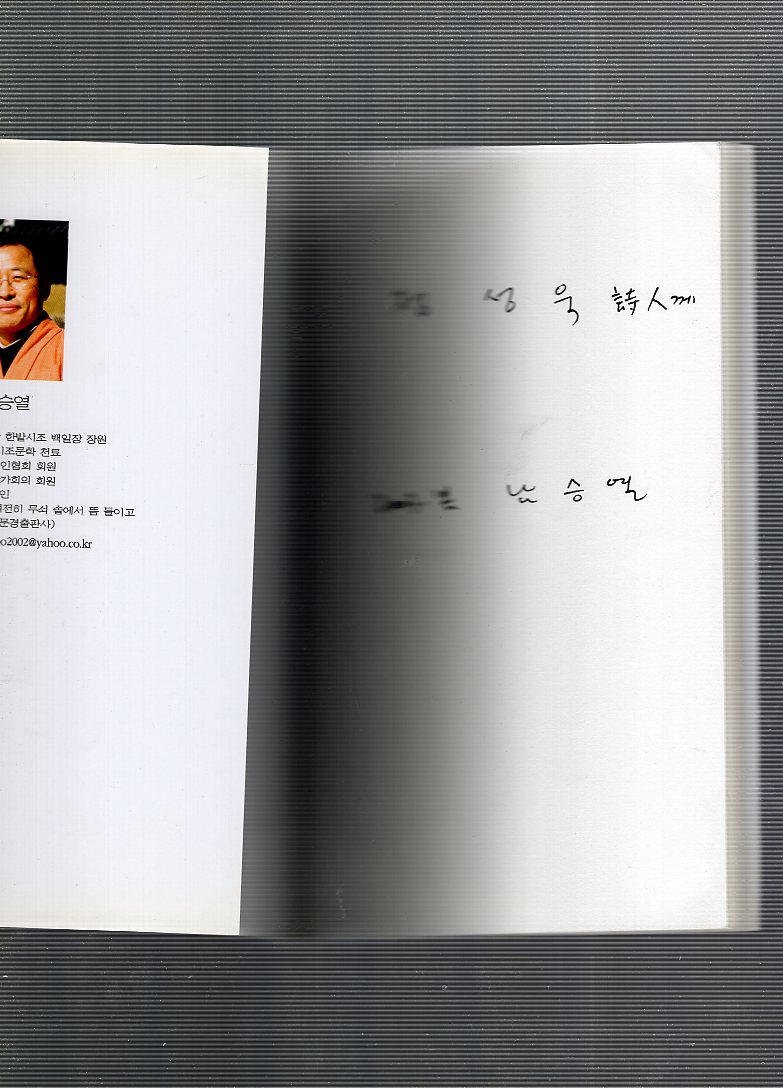 승열
한밭시조 백일장 장원
시조문학 천료
인협회 회원
가회의 회원
인
전히 무쇠 솥에서 뜸 들이고
문경출판사)
o2002@yahoo.co.kr
성 욱 詩人께
남 승 열